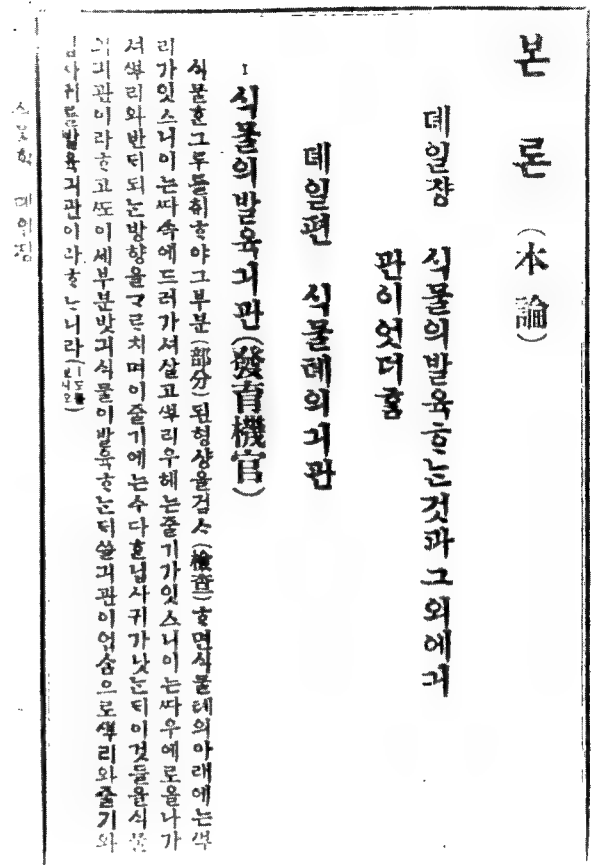 본론 (本論)
뎨일쟝 식물의발육ᄒᆞᄂᆞᆫ것과그외에긔
관이엇더홈
뎨일편 식물톄의긔관
1 식물의발육긔관(發育機官)
식물ᄒᆞᆫ그루를취ᄒᆞ야그부분(部分)된형샹을검ᄉᆞ(檢査)ᄒᆞ면식물톄의아래에는ᄲᅮ
리가잇스니이는ᄯᅡ속에드러가셔살고ᄲᅮ리우헤는줄기가잇스니이는ᄯᅡ우에로올나가
셔ᄲᅮ리와반ᄃᆡ되ᄂᆞᆫ방향을ᄀᆞᄅᆞ치며이줄기에는수다ᄒᆞᆫ닙사귀가낫ᄂᆞᆫᄃᆡ이것들을식물
의긔관이라ᄒᆞ고ᄯᅩ이세부분밧긔식물이발육ᄒᆞᄂᆞᆫᄃᆡ쓸긔관이업슴으로ᄲᅮ리와줄기와
닙사귀를발육긔관이라ᄒᆞᄂᆞ니라(一도를보시오)
식물학 뎨일쟝